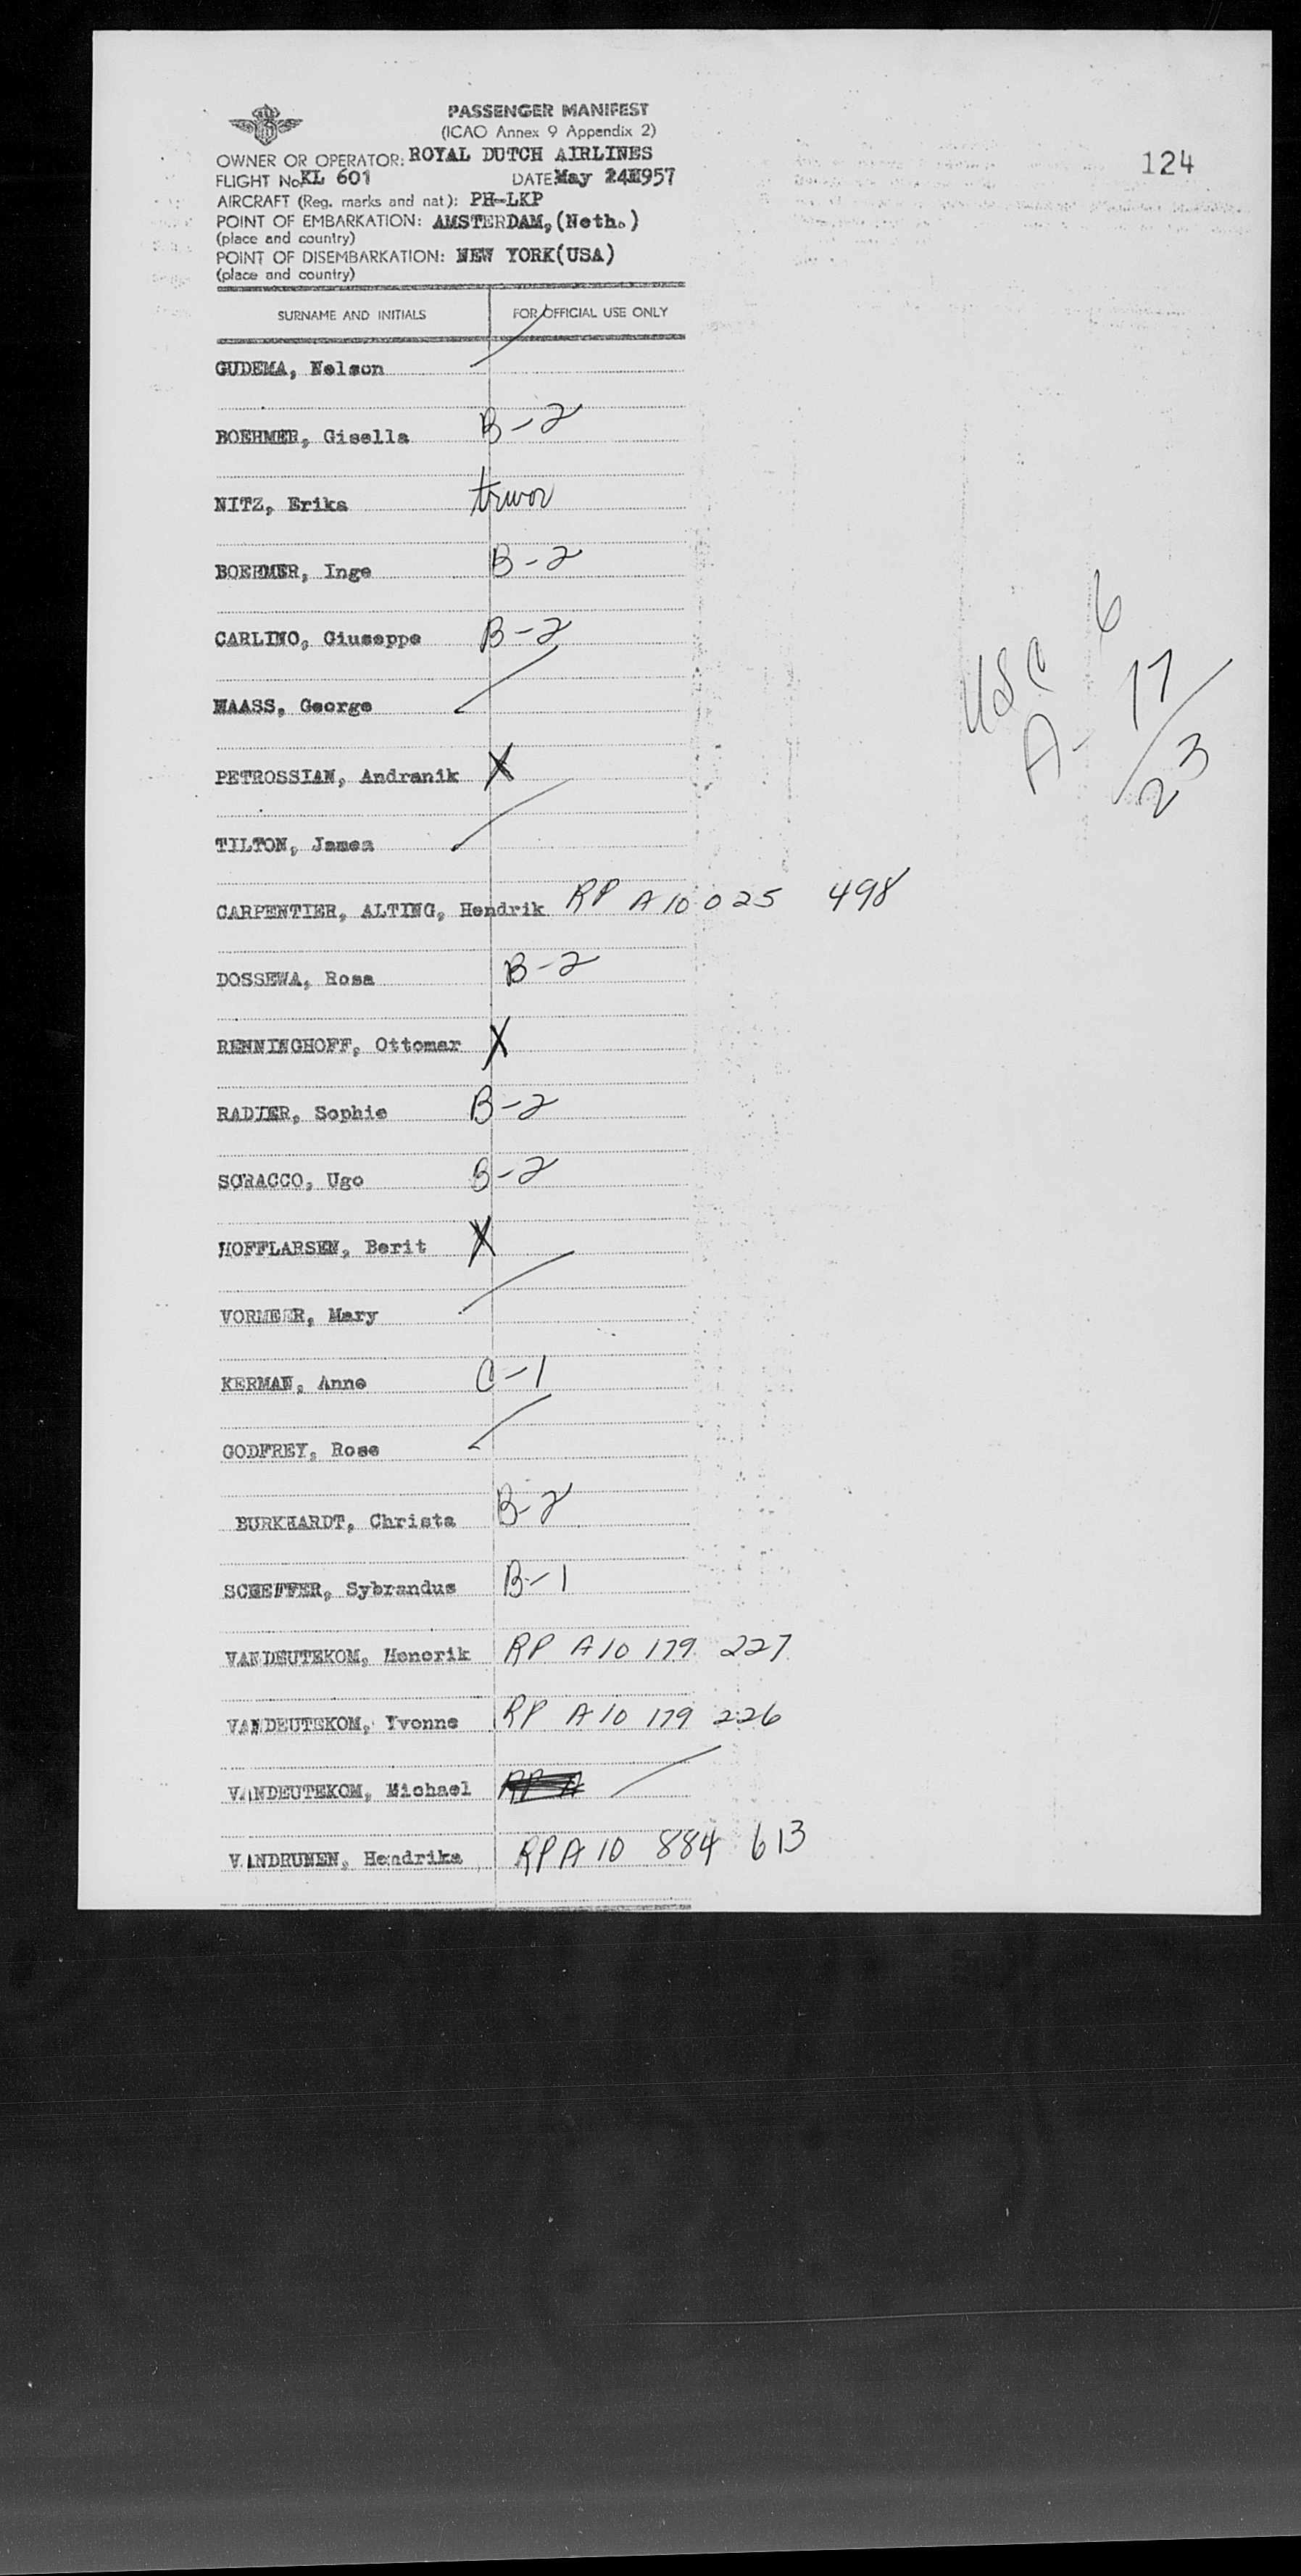 PASSENGER MANIFEST
(ICAO Annex 9 Appendix 2)
124
OWNER OR OPERATOR: ROYAL DUTCH AIRLINES
FLIGHT No. KL 601 DATE May 24 1957
AIRCRAFT (Reg. marks and nat): PH-LKP
POINT OF EMBARKATION: AMSTERDAM, (Neth.)
(place and country)
POINT OF DISEMBARKATION: NEW YORK(USA)
(place and country)
SURNAME AND INITIALS FOR OFFICIAL USE ONLY
GUDEMA, Nelson
BOEHMER, Gisella B-2
NITZ, Erika
BOEHMER, Inge B-2
CARLINO, Giuseppe B-2
USC 6
MAASS, George
A- 17
PETROSSIAN, Andranik X
23
TILTON, James
CARPENTIER, ALTING, Hendrik RP A10 025 498
DOSSEWA, Rosa B-2
RENNINGHOFF, Ottomar X
RADIER, Sophie B-2
SORACCO, Ugo B-2
HOFFLARSEN, Berit X
VORMEER, Mary
KERMAN, Anne C-1
GODFREY, Rose
BURKHARDT, Christa B-2
SCHEFFER, Sybrandus B-1
VANDEUTEKOM, Hendrik RP A10 179 227
VANDEUTEKOM, Yvonne RP A10 179 226
VANDEUTEKOM, Michael RP A
VANDRUNEN, Hendrika RP A10 884 613